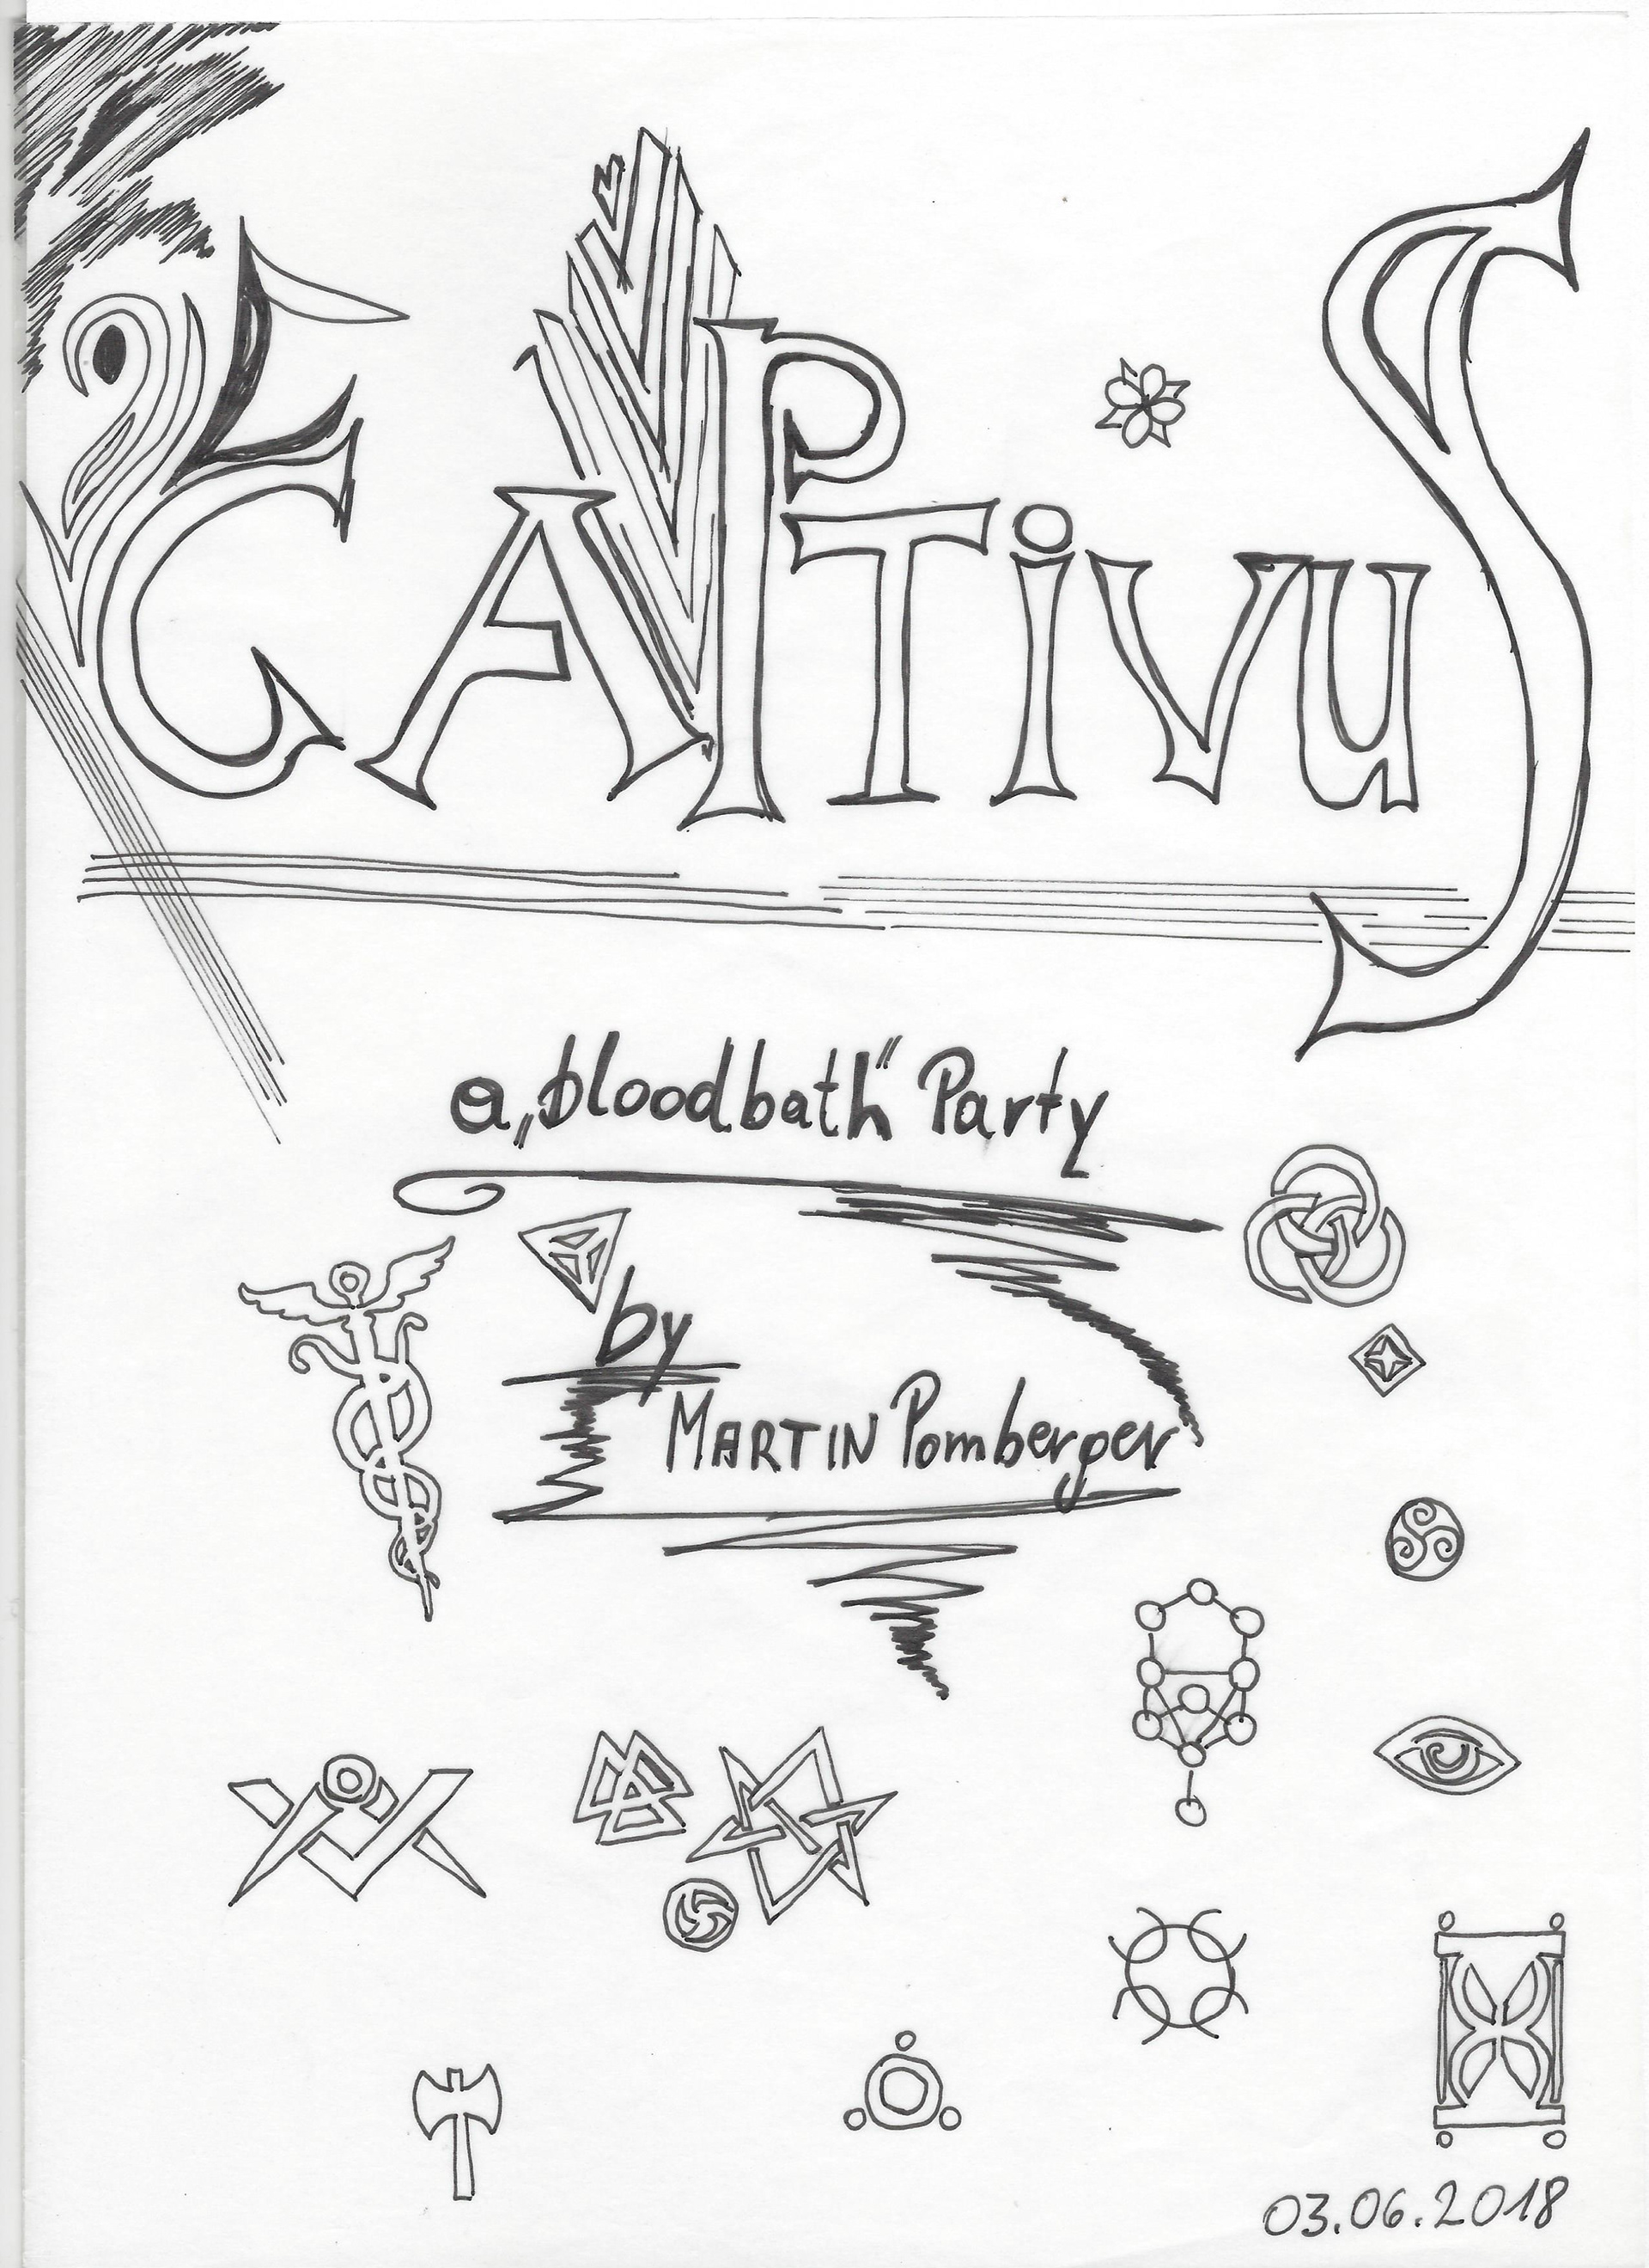 CAPTivuS
a „bloodbath" Party
by
MARTIN Pomberger
03.06.2018